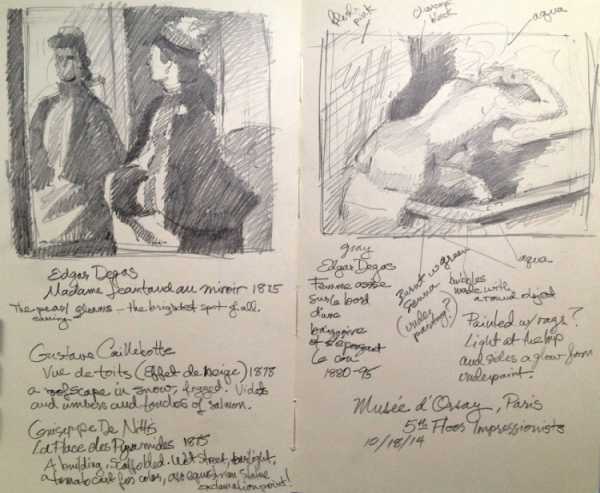 Edgar Degas
Madame Jeantaud au miroir 1875
The pearl earring gleams – the brightest spot of all.
Gustave Caillebotte
Vue de toits (Effet de Neige) 1878
a roofscape in snow, fogged. Violets
and umbers and touches of salmon.
Giuseppe De Nittis
La Place des Pyramides 1875
A building, scaffolded. Wet street,
a tomato cart for color, an equestrian statue
exclamation point!
pink
black
aqua
gray
Edgar Degas
Femme assise
sur le bord
d'une
baignoire
et s'épongeant
le cou
1880-95
Burnt
Sienna
(under
painting?)
aqua
bubbles
made with
a round object
Painted w/rags?
Light at the hip
and sides a glow from
underpaint.
Musée d'Orsay, Paris
5th Floor Impressionists
10/18/14